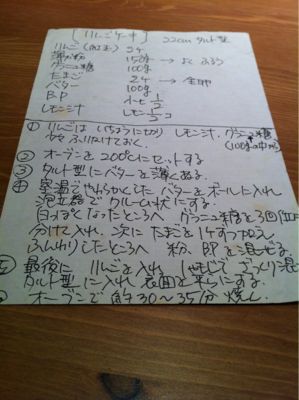 [りんごケーキ] 22cm タルト型
りんご(紅玉) 2ケ
薄力粉 150g → よくふるう
グラニュー糖 100g
たまご 2ケ → 全卵
バター 100g
B.P 小さじ 1/2
レモン汁 レモン 1/2コ
① りんごは いちょうに切り レモン汁、グラニュー糖
少々 ふりかけておく。 (100gの中から)
② オーブンを 200℃にセットする
③ タルト型にバターを薄くぬる。
④ 室温でやわらかくした バターをボールに入れ
泡立器で クルーム状にする。
白っぽくなったところへ グラニュー糖を3回位に
分けて入れ、次に たまごを 1ケずつ加え
ふんわりしたところへ 粉、BPを混ぜる。
⑤ 最後に りんごを入れ しゃもじで ざっくり混
タルト型に入れ 表面を平らにする。
オーブンで 約30〜35分 焼く。